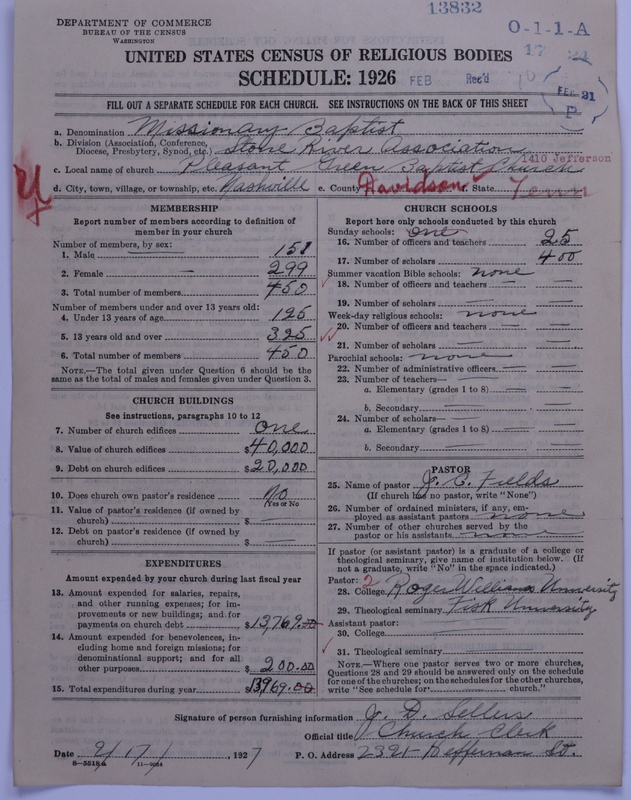 13832
DEPARTMENT OF COMMERCE
BUREAU OF THE CENSUS
WASHINGTON
O-1-1-A
UNITED STATES CENSUS OF RELIGIOUS BODIES
SCHEDULE: 1926
FEB Rec'd
FEB 21
P
FILL OUT A SEPARATE SCHEDULE FOR EACH CHURCH. SEE INSTRUCTIONS ON THE BACK OF THIS SHEET
a. Denomination Missionary Baptist
b. Division (Association, Conference, Diocese, Presbytery, Synod, etc.) Stone River Association
c. Local name of church Pleasant Green Baptist Church 1410 Jefferson
d. City, town, village, or township, etc. Nashville e. County Davidson f. State Tenn
MEMBERSHIP
Report number of members according to definition of member in your church
Number of members, by sex:
1. Male 151
2. Female 299
3. Total number of members 450
Number of members under and over 13 years old:
4. Under 13 years of age 125
5. 13 years old and over 325
6. Total number of members 450
NOTE.—The total given under Question 6 should be the same as the total of males and females given under Question 3.
CHURCH BUILDINGS
See instructions, paragraphs 10 to 12
7. Number of church edifices One
8. Value of church edifices $40,000
9. Debt on church edifices $20,000
10. Does church own pastor's residence No
Yes or No
11. Value of pastor's residence (if owned by church) $
12. Debt on pastor's residence (if owned by church) $
EXPENDITURES
Amount expended by your church during last fiscal year
13. Amount expended for salaries, repairs, and other running expenses; for improvements or new buildings; and for payments on church debt $13,769.00
14. Amount expended for benevolences, including home and foreign missions; for denominational support; and for all other purposes $200.00
15. Total expenditures during year $13969.00
CHURCH SCHOOLS
Report here only schools conducted by this church
Sunday schools: one
16. Number of officers and teachers 25
17. Number of scholars 400
Summer vacation Bible schools: none
18. Number of officers and teachers
19. Number of scholars
Week-day religious schools: none
20. Number of officers and teachers
21. Number of scholars
Parochial schools: none
22. Number of administrative officers
23. Number of teachers—
a. Elementary (grades 1 to 8)
b. Secondary
24. Number of scholars—
a. Elementary (grades 1 to 8)
b. Secondary
PASTOR
25. Name of pastor J. C. Fields
(If church has no pastor, write "None")
26. Number of ordained ministers, if any, employed as assistant pastors none
27. Number of other churches served by the pastor or his assistants none
If pastor (or assistant pastor) is a graduate of a college or theological seminary, give name of institution below. (If not a graduate, write "No" in the space indicated.)
Pastor: 2
28. College Roger Williams University
29. Theological seminary Fisk University
Assistant pastor:
30. College
31. Theological seminary
NOTE.—Where one pastor serves two or more churches, Questions 28 and 29 should be answered only on the schedule for one of the churches; on the schedules for the other churches, write "See schedule for church."
Signature of person furnishing information J. D. Sellers
Official title Church Clerk
Date 2/17/, 1927 P. O. Address 2321 Heffernan St.
8-5518a 11-9064